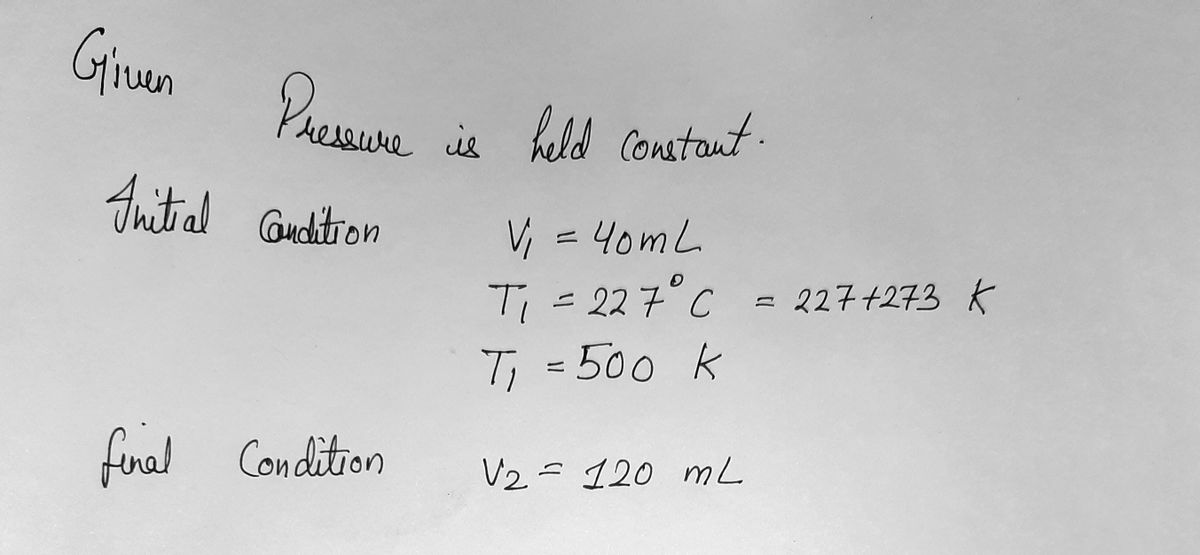 Given
Pressure is held constant.
Initial Condition V₁ = 40mL
T₁ = 227°C = 227+273 K
T₁ = 500 K
final Condition V2 = 120 mL